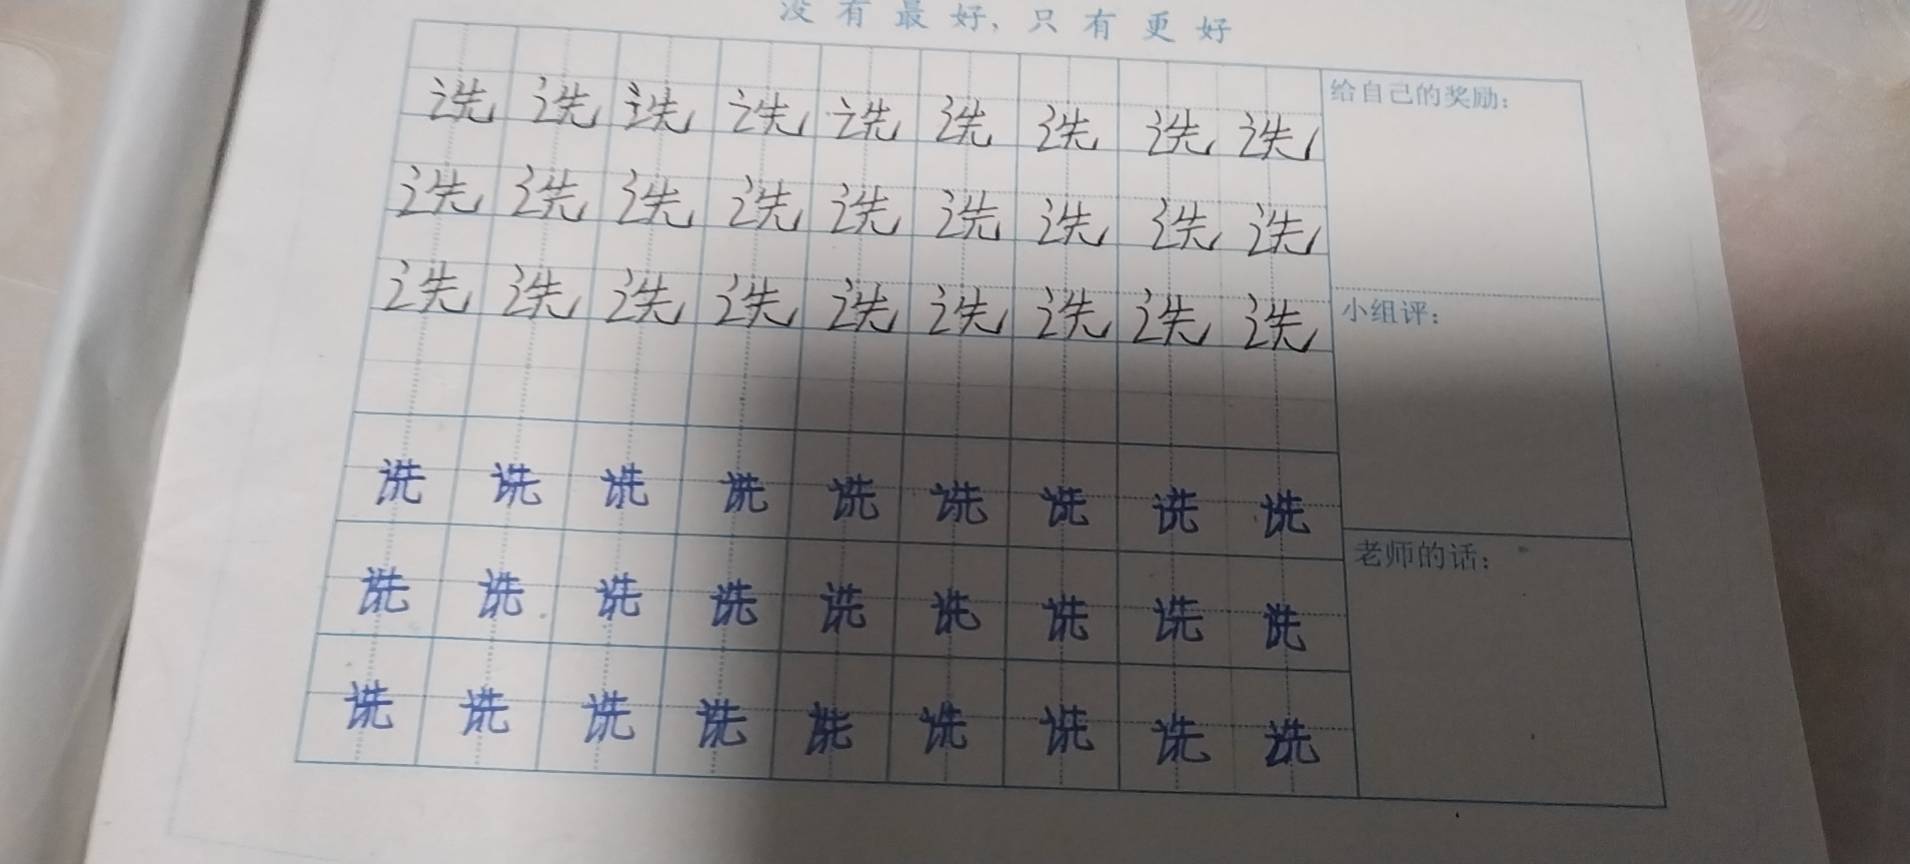 没有最好，只有更好
诜诜诜诜诜诜诜诜诜
诜诜诜诜诜诜诜诜诜
诜诜诜诜诜诜诜诜诜
诜诜诜诜诜诜诜诜诜
诜诜诜诜诜诜诜诜诜
诜诜诜诜诜诜诜诜诜
给自己的奖励：
小组评：
老师的话：